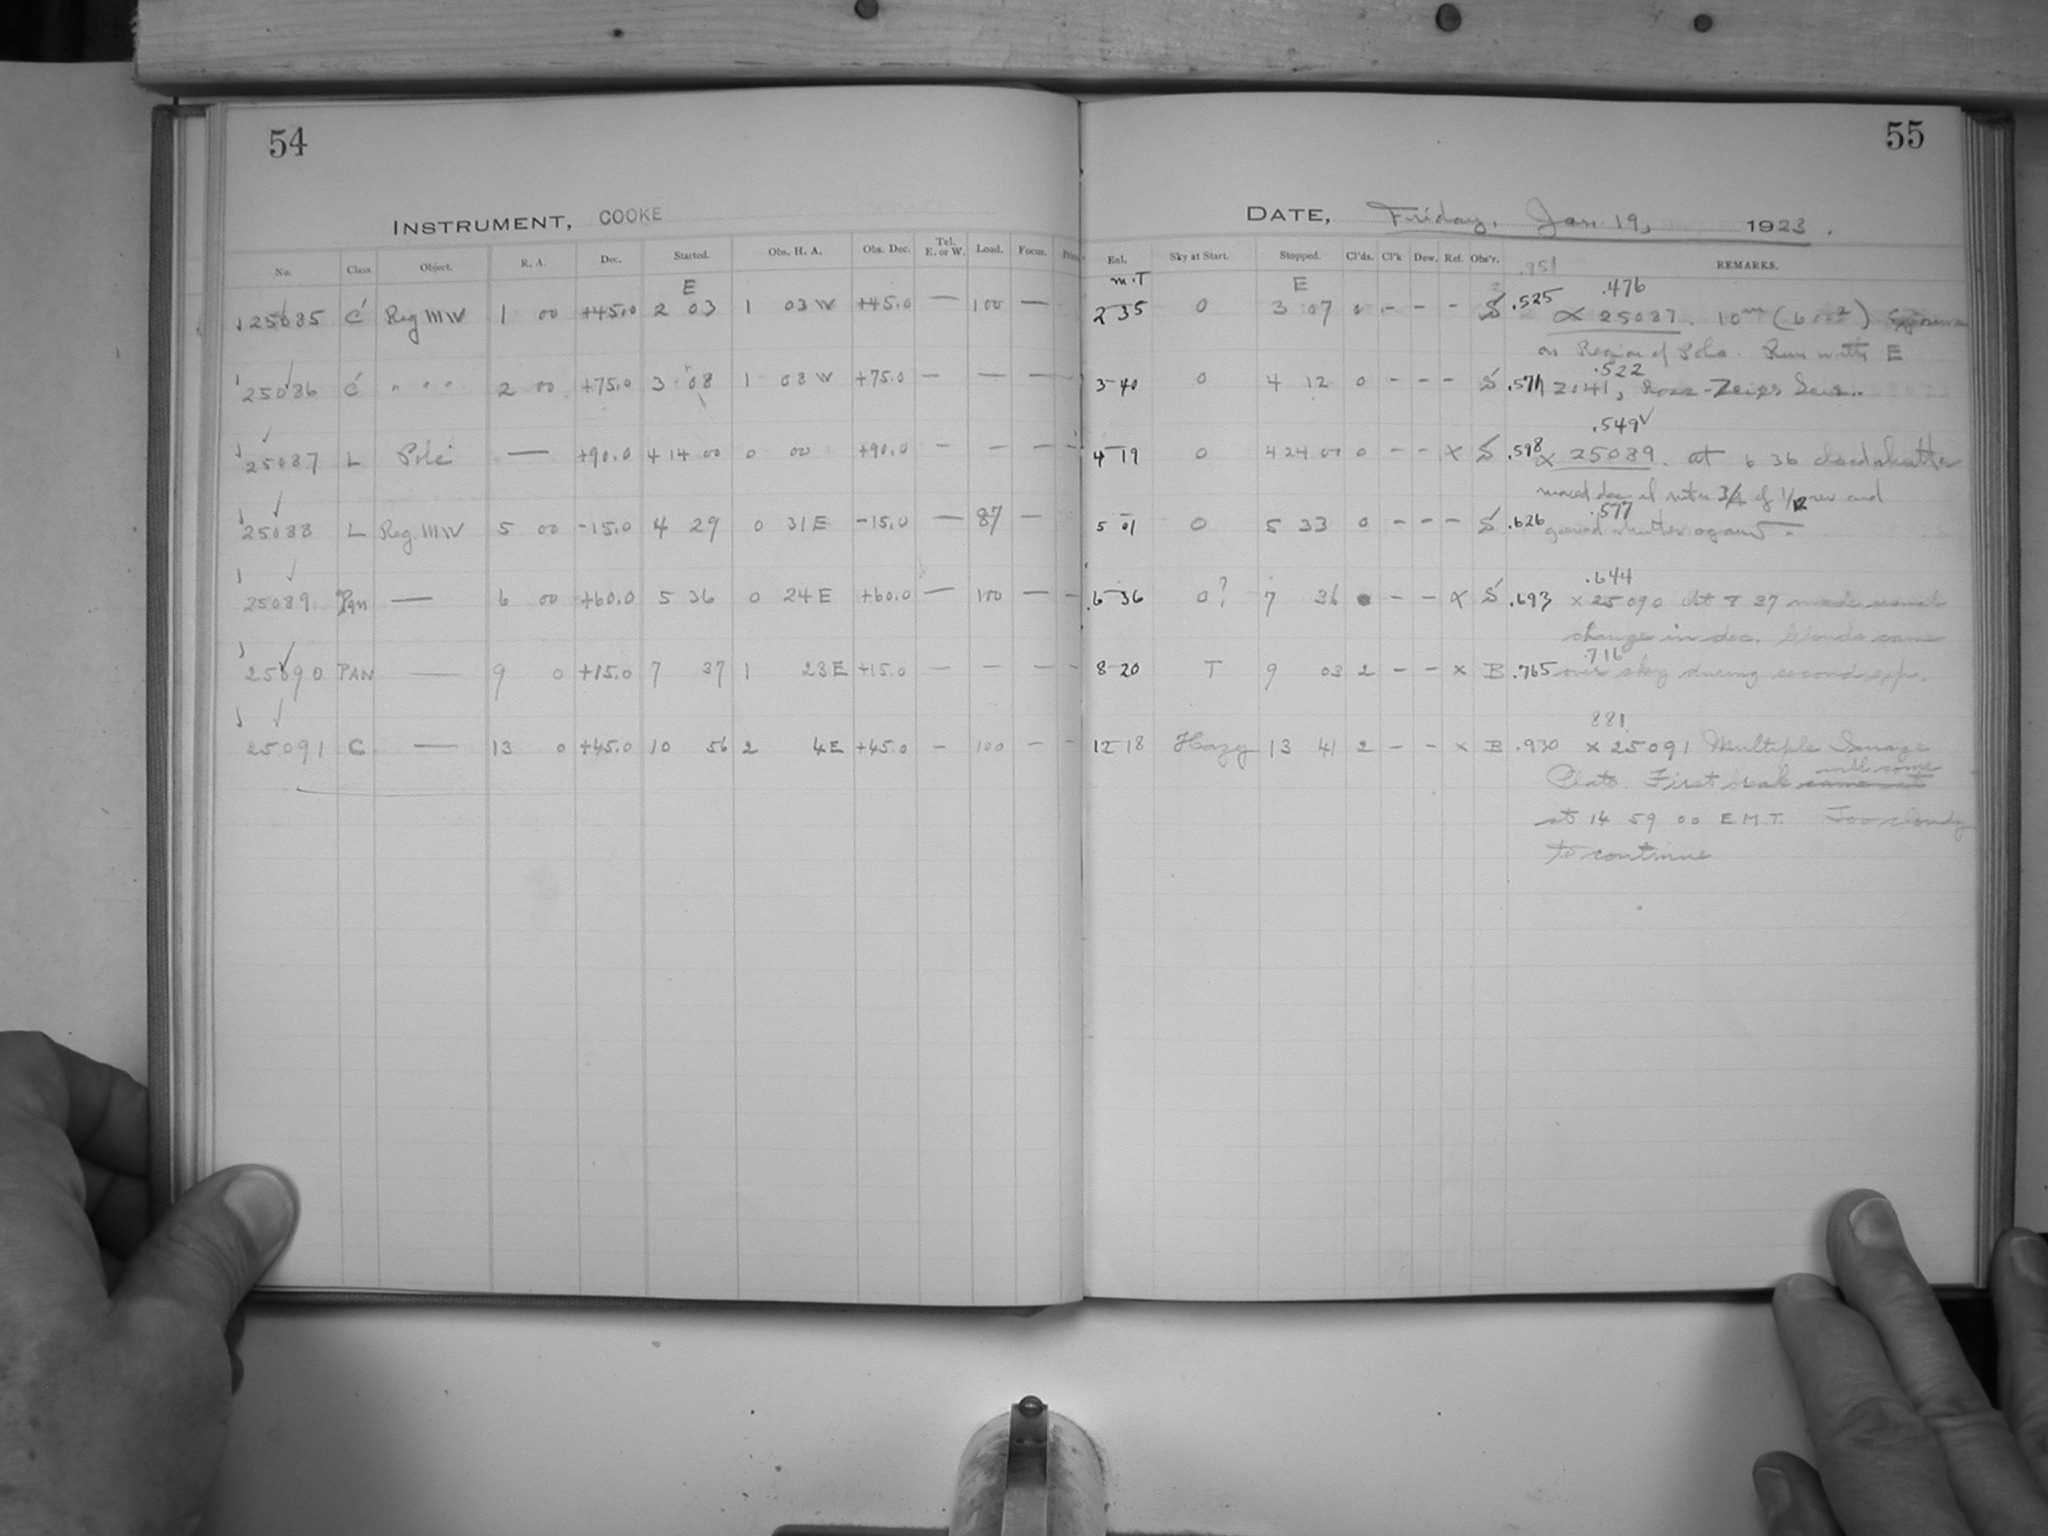 54
INSTRUMENT, COOKE
No. Class. Object. R. A. Dec. Started. Obs. H. A. Obs. Dec. Tel. E. or W. Load. Focus.
E
25085 C Reg III W 1 00 +45.0 2 03 1 03 W +45.0 — 100 —
25086 C " " " 2 00 +75.0 3 08 1 08 W +75.0 — — — —
25087 L Pole — +90.0 4 14 00 0 00 +90.0 — — — —
25088 L Reg. III W 5 00 -15.0 4 29 0 31 E -15.0 — 87 —
25089 Pan — 6 00 +60.0 5 36 0 24 E +60.0 — 100 — —
25090 PAN — 9 0 +15.0 7 37 1 23 E +15.0 — — — —
25091 C — 13 0 +45.0 10 56 2 4 E +45.0 — 100 — —
55
DATE, Friday, Jan. 19, 1923.
Sky at Start. Stopped. Cl'ds. Cl'k Dew. Ref. Obs'r. .951 REMARKS.
m.T E .476
2 35 0 3 07 0 - - - S .525 × 25087. 10m Exposure
on Region of Pole. Run with E
.522
3 40 0 4 12 0 - - - S .571 2:41, Ross-Zeiss Lens.
.549
4 19 0 4 24 00 0 - - × S .598 × 25089. At 6 36 closed shutter
moved dec. 3/4 of 1/2 rev and
.577
5 01 0 5 33 0 - - - S .626 shutter again.
.644
6 36 0? 7 36 - - × S .693 × 25090 At 8 37 made usual
change in dec. Clouds came
.716
8 20 T 9 03 2 - - × B .765 over sky during second exp.
881
12 18 Hazy 13 41 2 - - × B .930 × 25091 Multiple Image
will come
Plate. First break came at
at 14 59 00 E.M.T. Too cloudy
to continue